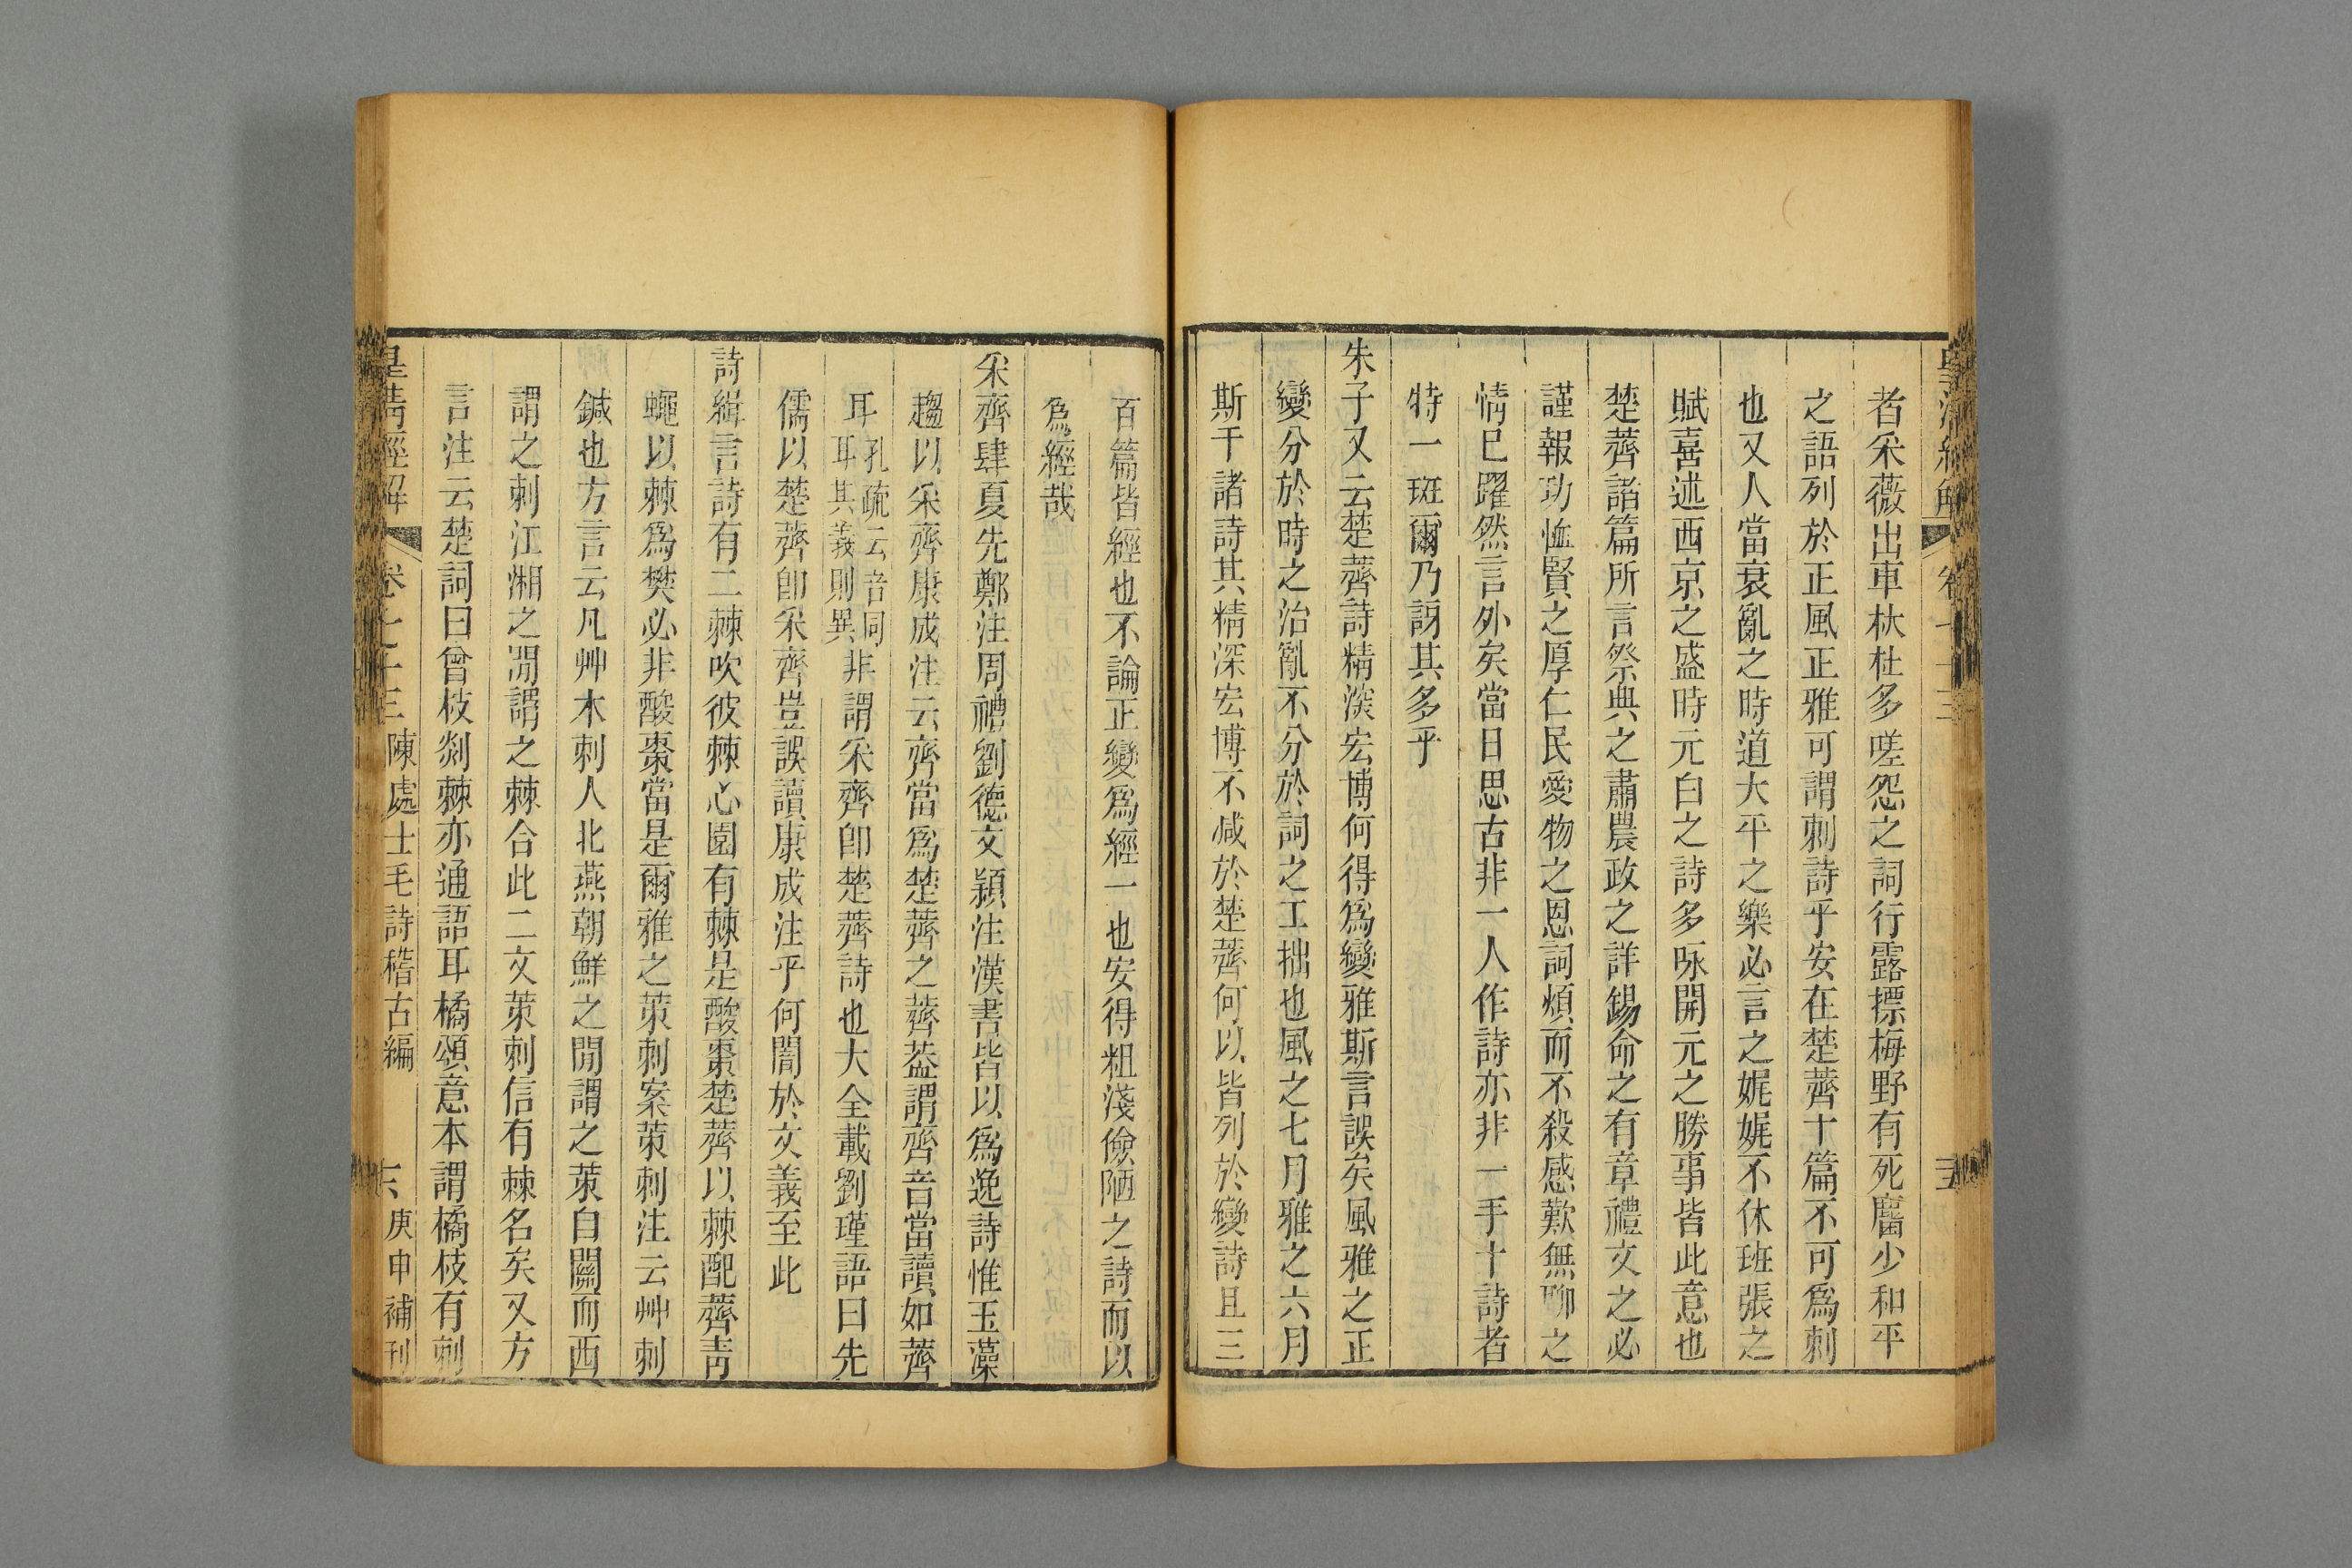 者采薇出車杕杜多嗟怨之詞行露摽梅野有死麕少和平
之語列於正風正雅可謂刺詩乎安在楚薺十篇不可爲刺
也又人當衰亂之時道大平之樂必言之娓娓不休班張之
賦喜述西京之盛時元白之詩多咏開元之勝事皆此意也
楚薺諸篇所言祭典之肅農政之詳錫命之有章禮文之必
謹報功恤賢之厚仁民愛物之恩詞煩而不殺感歎無聊之
情已躍然言外矣當日思古非一人作詩亦非一手十詩者
特一斑爾乃訝其多乎
朱子又云楚薺詩精深宏博何得爲變雅斯言誤矣風雅之正
變分於時之治亂不分於詞之工拙也風之七月雅之六月
斯干諸詩其精深宏博不减於楚薺何以皆列於變詩且三
百篇皆經也不論正變爲經一也安得粗淺儉陋之詩而以
爲經哉
采齊肆夏先鄭注周禮劉德文穎注漢書皆以爲逸詩惟玉藻
趨以采齊康成注云齊當爲楚薺之薺葢謂齊音當讀如薺
耳孔疏云音同耳其義則異非謂采齊卽楚薺詩也大全載劉瑾語曰先
儒以楚薺卽采齊豈誤讀康成注乎何闇於文義至此
詩緝言詩有二棘吹彼棘心園有棘是酸棗楚薺以棘配薺靑
蠅以棘爲樊必非酸棗當是爾雅之茦刺案茦刺注云艸刺
鍼也方言云凡艸木刺人北燕朝鮮之閒謂之茦自關而西
謂之刺江湘之閒謂之棘合此二文茦刺信有棘名矣又方
言注云楚詞曰曾枝剡棘亦通語耳橘頌意本謂橘枝有刺
皇淸經解 卷七十三 陳處士毛詩稽古編 六 庚申補刊